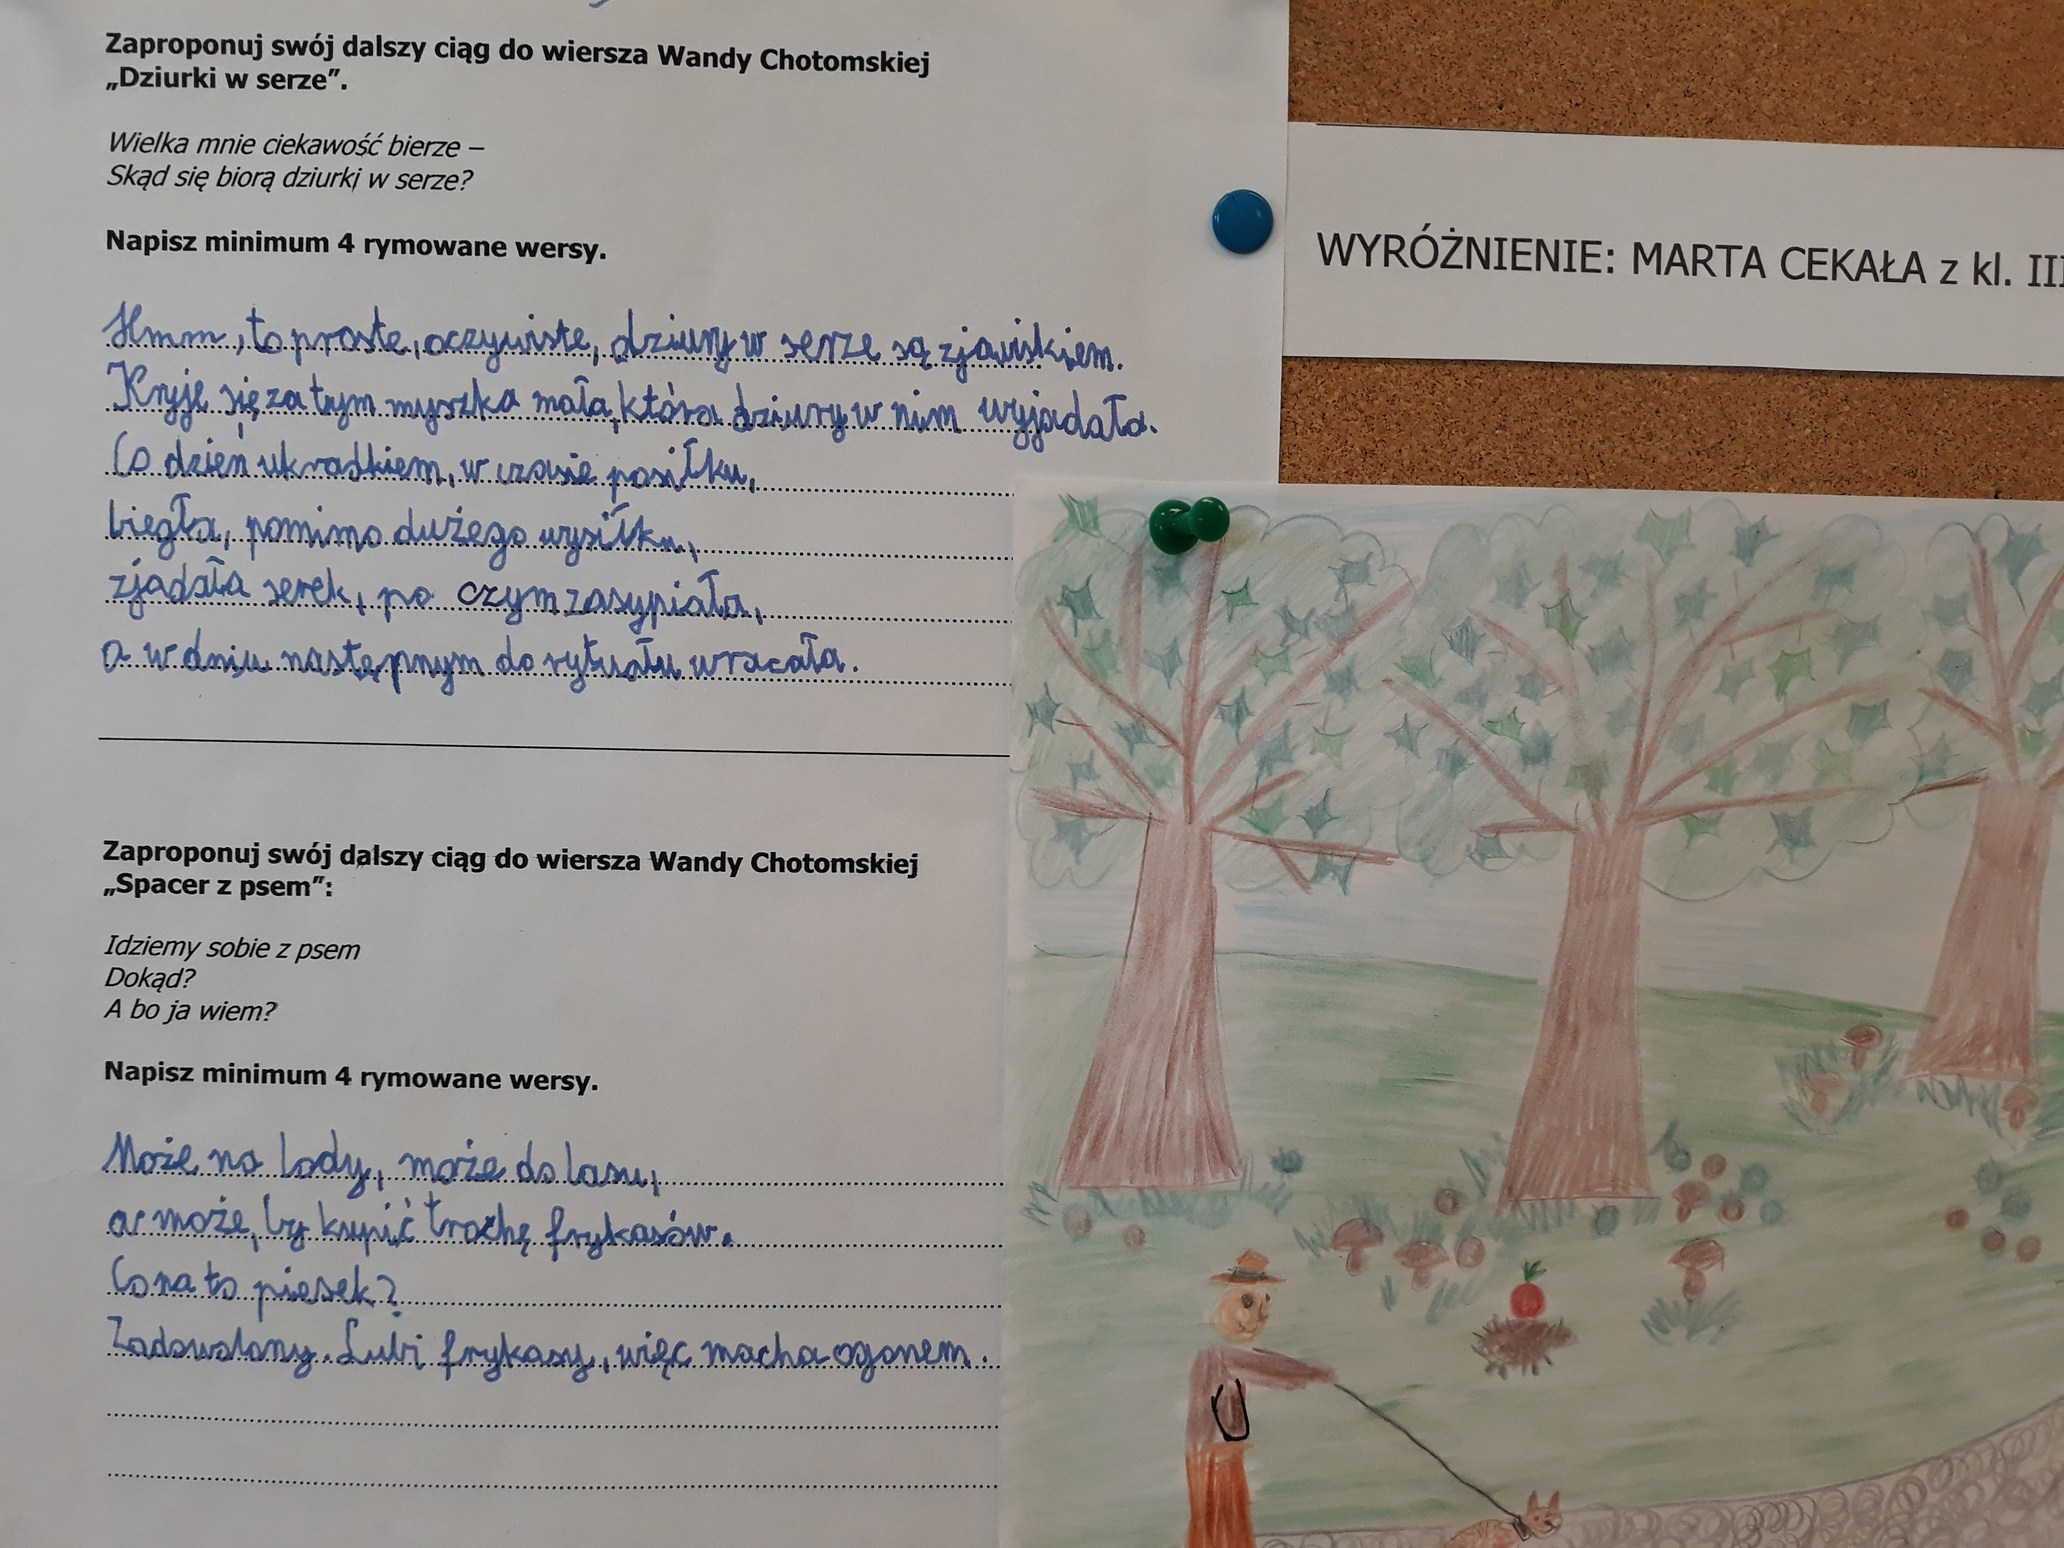 Zaproponuj swój dalszy ciąg do wiersza Wandy Chotomskiej
„Dziurki w serze”.
Wielka mnie ciekawość bierze –
Skąd się biorą dziurki w serze?
Napisz minimum 4 rymowane wersy.
Hmm, to proste, oczywiste, dziury w serze są zjawiskiem.
Kryje się za tym myszka mała, która dziury w nim wyjadała.
Co dzień ukradkiem, w czasie posiłku,
biegła, pomimo dużego wysiłku,
zjadała serek, po czym zasypiała,
a w dniu następnym do rytuału wracała.
Zaproponuj swój dalszy ciąg do wiersza Wandy Chotomskiej
„Spacer z psem”:
Idziemy sobie z psem
Dokąd?
A bo ja wiem?
Napisz minimum 4 rymowane wersy.
Może na lody, może do lasu,
a może, by kupić trochę frykasów.
Co na to piesek?
Zadowolony. Lubi frykasy, więc macha ogonem.
WYRÓŻNIENIE: MARTA CEKAŁA z kl. III